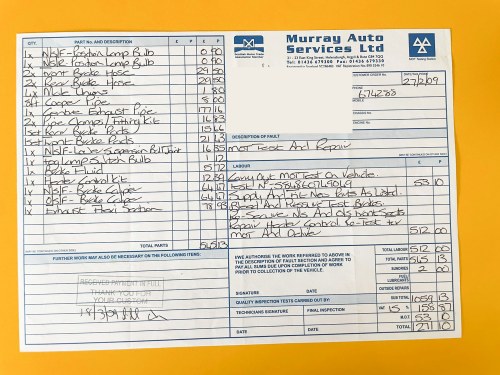 QTY. PART No. AND DESCRIPTION £ P £ P
1x N/S/F Position Lamp Bulb 0 90
1x N/S/R Position Lamp Bulb 0 90
2x Front Brake Hose 29 50
2x Rear Brake Hose 29 50
4x Male Unions 1 80
8ft Copper Pipe 8 00
1x Centre Exhaust Pipe 177 16
2x Pipe Clamps/Fitting Kit 16 83
1set Rear Brake Pads 15 66
1set Front Brake Pads 21 63
1x N/S/F Lower Suspension Ball Joint 16 85
1x Fog Lamp Switch Bulb 1 12
1x Brake Fluid 5 72
1x Heater Control Kit 12 89
1x N/S/F Brake Caliper 64 47
1x O/S/F Brake Caliper 64 47
1x Exhaust Flexi Section 78 93
TOTAL PARTS 545 13
FURTHER WORK MAY ALSO BE NECESSARY ON THE FOLLOWING ITEMS:
RECEIVED PAYMENT IN FULL
THANK YOU FOR
YOUR CUSTOM
18/3/09
Murray Auto
Services Ltd
21 - 23 East King Street, Helensburgh, Argyll & Bute G84 7QQ
Tel: 01436 679300 Fax: 01436 679330
MOT Testing Station
27/2/09
PHONE
674288
DESCRIPTION OF FAULT
Mot Test And Repair
LABOUR
Carry Out Mot Test On Vehicle.
53 10
Supply And Fit New Parts As Listed.
Bleed And Pressure Test Brakes.
Re-Secure N/S And O/S Front Seats
Repair Heater Control. Re-Test for
Mot And Deliver
512 00
I/WE AUTHORISE THE WORK REFERRED TO ABOVE IN
THE DESCRIPTION OF FAULT SECTION AND AGREE TO
PAY ALL SUMS DUE UPON COMPLETION OF WORK
PRIOR TO COLLECTION OF THE VEHICLE.
SIGNATURE DATE
QUALITY INSPECTION TESTS CARRIED OUT BY:
TECHNICIANS SIGNATURE FINAL INSPECTION
TOTAL LABOUR 512 00
TOTAL PARTS 545 13
SUNDRIES 2 00
FUEL
LUBRICANTS
OUTSIDE REPAIRS
SUB TOTAL 1059 13
VAT 15 % 158 87
M.O.T. 53 10
TOTAL 1271 10